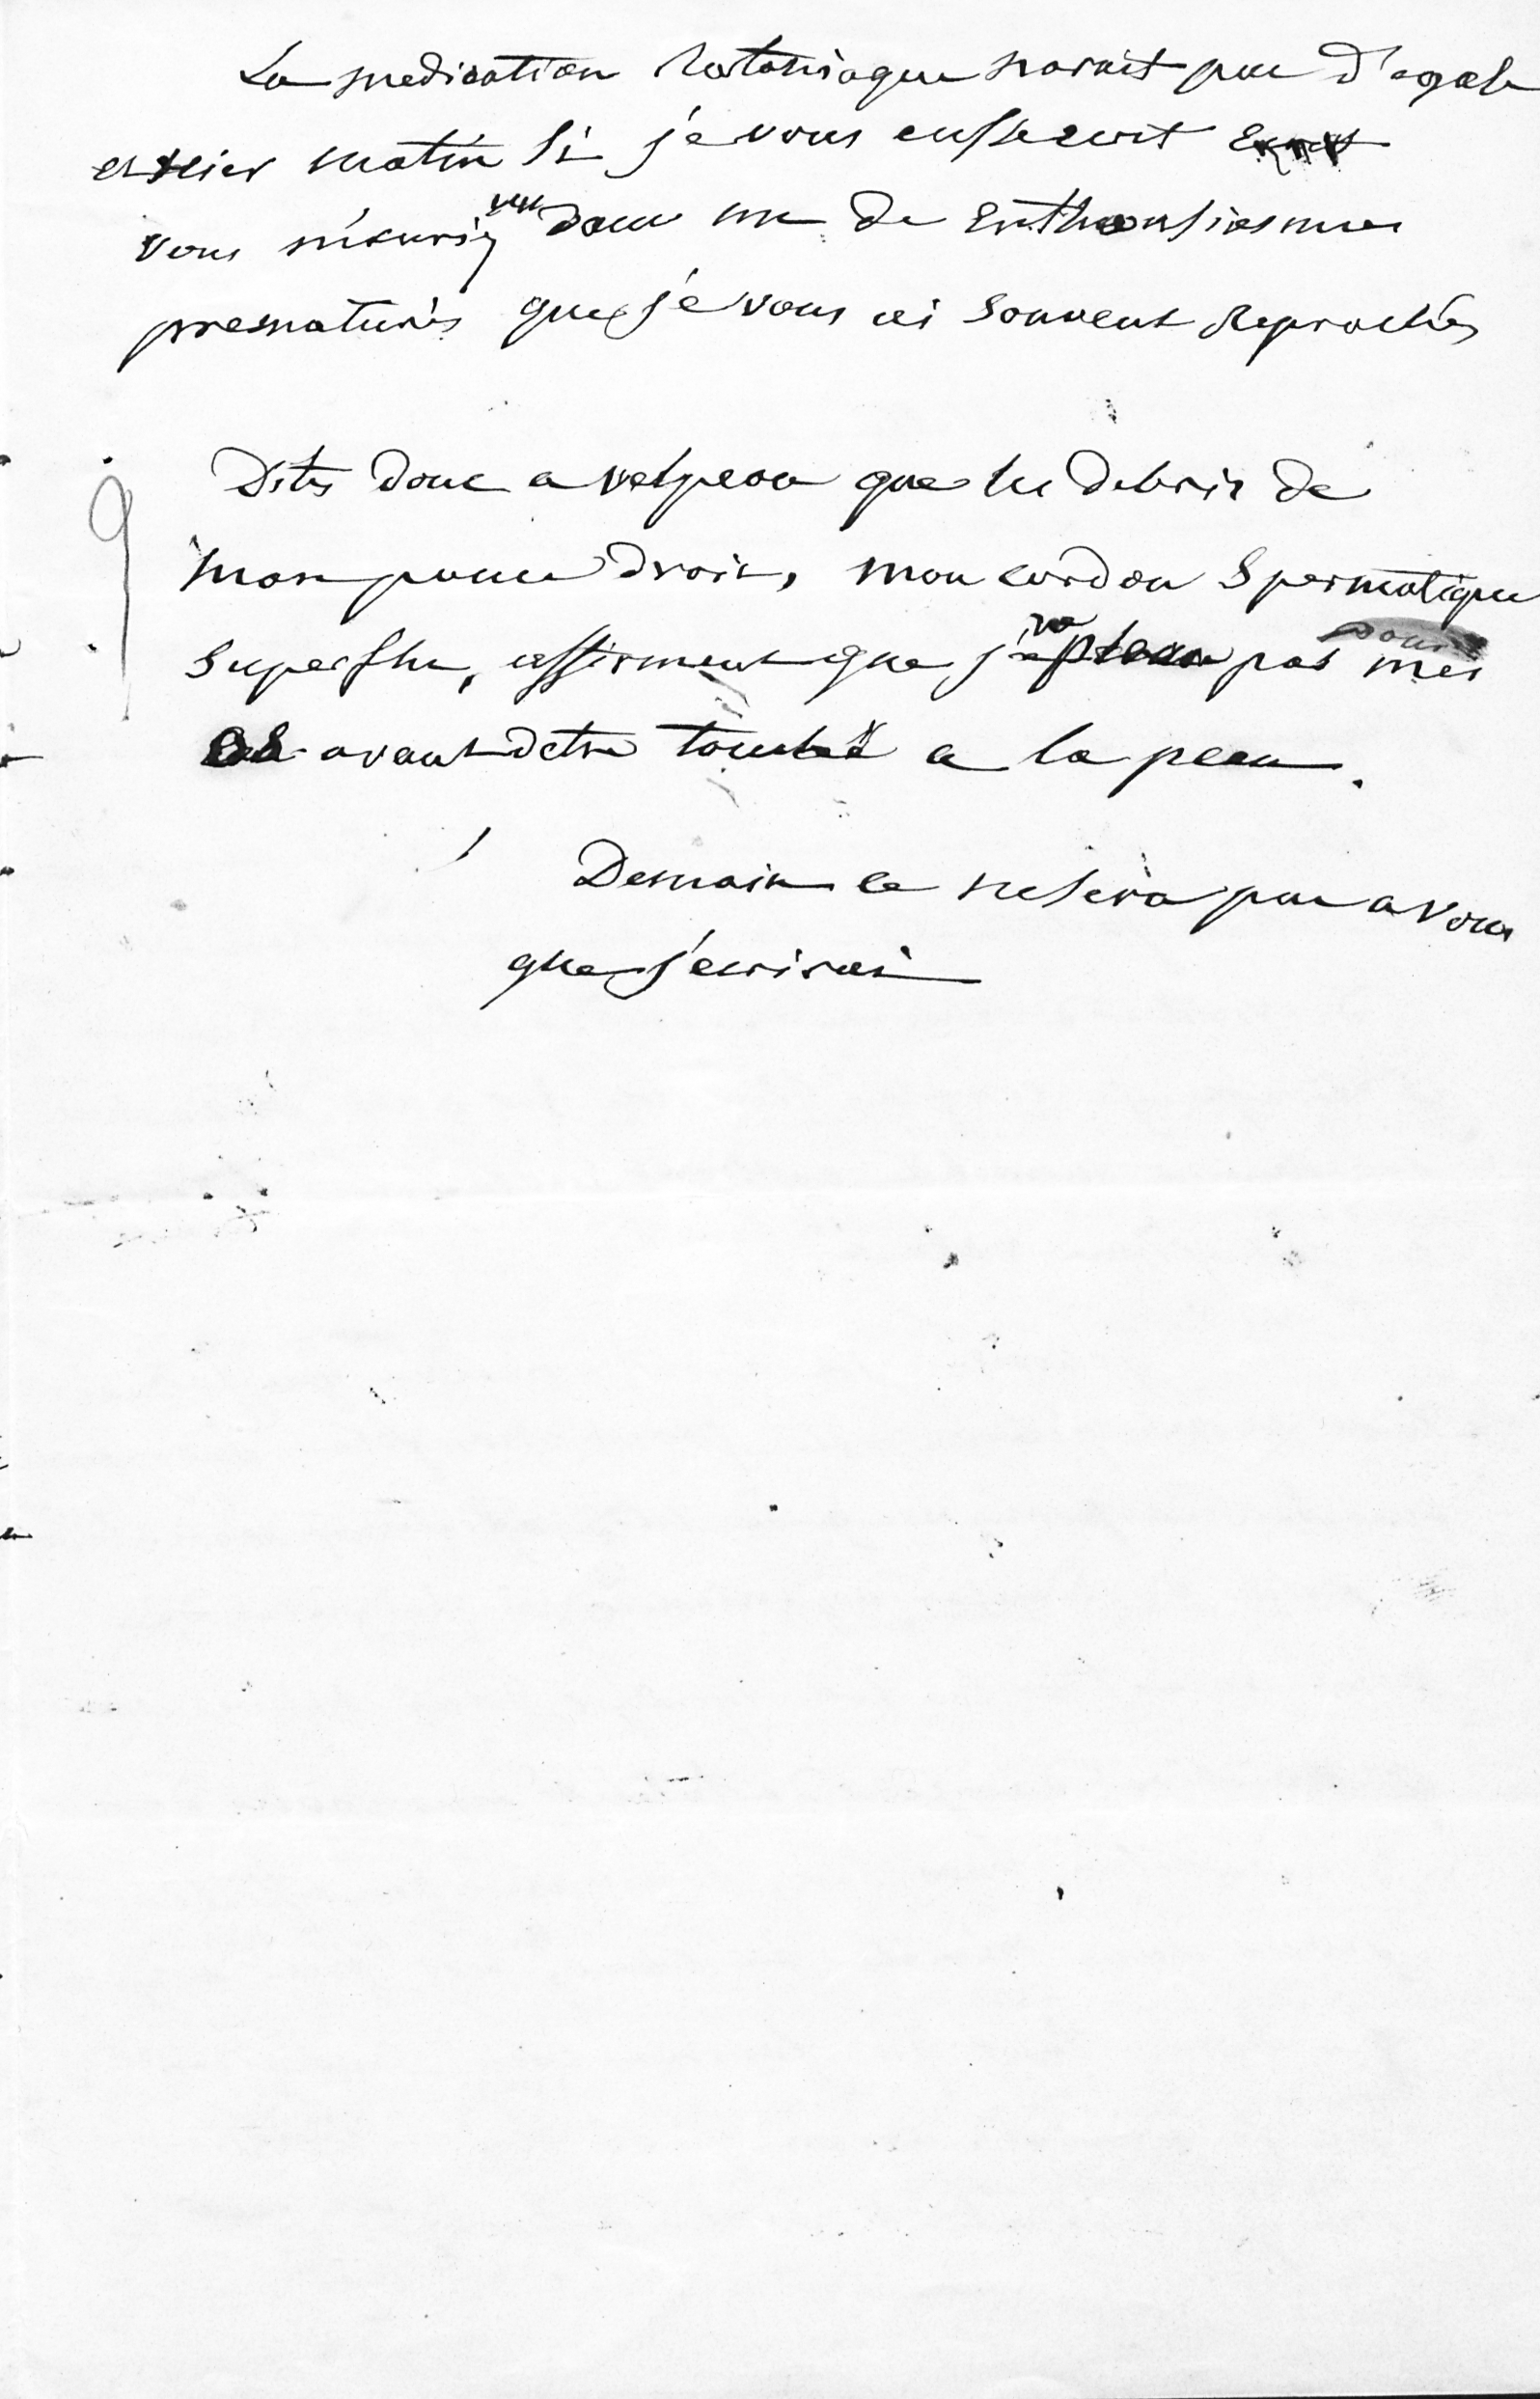 La medication Rataniaque navait pas d'egale
et hier matin si je vous eusse ecrit
vous m'auriez vu dans un de Enthousiasmes
prematurés que je vous ai souvent Reprochés
Dites donc a velpeau que les debris de
mon pouce droit, mon cordon Spermatique
Superflu, affirment que je pas mes
os avant detre touché a la peau.
Demain ce ne sera pas a vous
que j'ecrirai